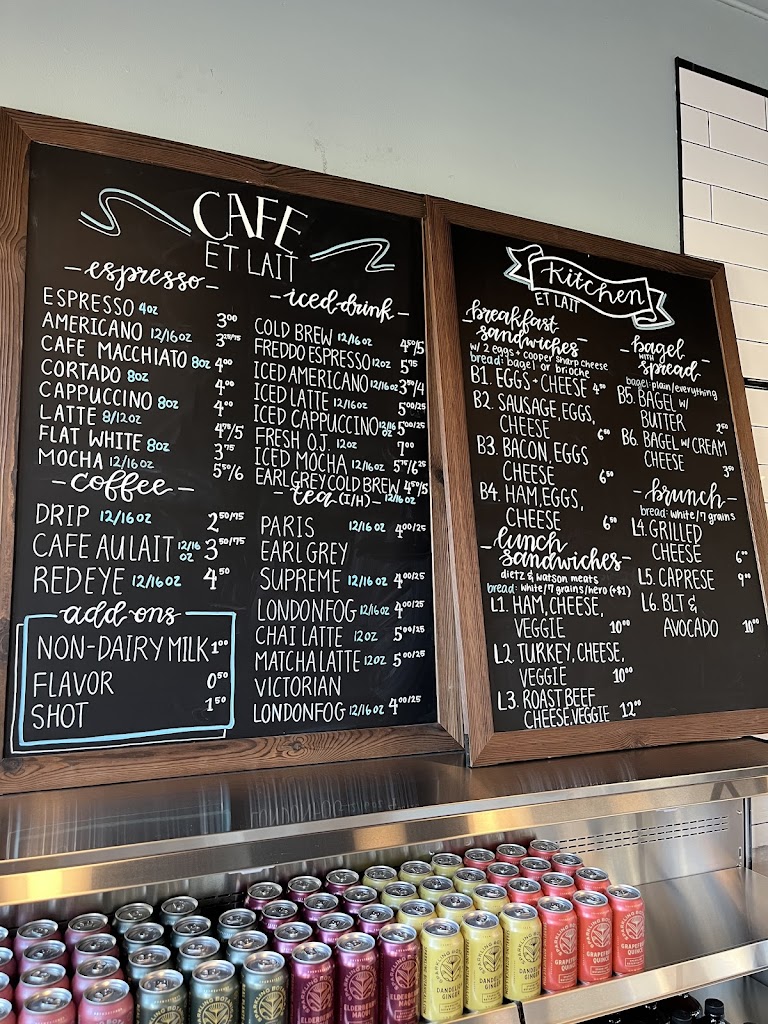 CAFE
ET LAIT
espresso
ESPRESSO 4oz 3⁰⁰
AMERICANO 12/16oz 3²⁵/⁷⁵
CAFE MACCHIATO 8oz 4⁰⁰
CORTADO 8oz 4⁰⁰
CAPPUCCINO 8oz 4⁰⁰
LATTE 8/12oz 4⁷⁵/5
FLAT WHITE 8oz 3⁷⁵
MOCHA 12/16oz 5⁵⁰/6
coffee
DRIP 12/16oz 2⁵⁰/⁷⁵
CAFE AU LAIT 12/16 oz 3⁵⁰/⁷⁵
REDEYE 12/16oz 4⁵⁰
add-ons
NON-DAIRY MILK 1⁰⁰
FLAVOR 0⁵⁰
SHOT 1⁵⁰
iced-drink
COLD BREW 12/16oz 4⁵⁰/5
FREDDO ESPRESSO 12oz 5⁷⁵
ICED AMERICANO 12/16oz 3⁵⁰/4
ICED LATTE 12/16oz 5⁰⁰/²⁵
ICED CAPPUCCINO 12/16 oz 5⁰⁰/²⁵
FRESH O.J. 12oz 7⁰⁰
ICED MOCHA 12/16oz 5⁷⁵/6²⁵
EARL GREY COLD BREW 12/16oz 4⁵⁰/5
tea (I/H)
PARIS 12/16oz 4⁰⁰/²⁵
EARL GREY
SUPREME 12/16oz 4⁰⁰/²⁵
LONDONFOG 12/16oz 4⁰⁰/²⁵
CHAI LATTE 12oz 5⁰⁰/²⁵
MATCHA LATTE 12oz 5⁰⁰/²⁵
VICTORIAN
LONDONFOG 12/16oz 4⁰⁰/²⁵
Kitchen
ET LAIT
breakfast
sandwiches
w/ 2 eggs + cooper sharp cheese
bread: bagel or brioche
B1. EGGS + CHEESE 4⁵⁰
B2. SAUSAGE, EGGS,
CHEESE 6⁵⁰
B3. BACON, EGGS
CHEESE 6⁵⁰
B4. HAM, EGGS,
CHEESE 6⁵⁰
lunch
sandwiches
dietz & watson meats
bread: white/7 grains/hero (+$1)
L1. HAM, CHEESE,
VEGGIE 10⁰⁰
L2. TURKEY, CHEESE,
VEGGIE 10⁰⁰
L3. ROAST BEEF
CHEESE, VEGGIE 12⁰⁰
bagel
WITH
spread
bagel: plain/everything
B5. BAGEL w/
BUTTER 2⁵⁰
B6. BAGEL w/ CREAM
CHEESE 3⁵⁰
brunch
bread: white/7 grains
L4. GRILLED
CHEESE 6⁰⁰
L5. CAPRESE 9⁰⁰
L6. BLT &
AVOCADO 10⁰⁰
DANDELION
GINGER
GRAPEFRUIT
QUINCE
GRAPEFRUIT
QUINCE
GRAPEFRUIT
QUINCE